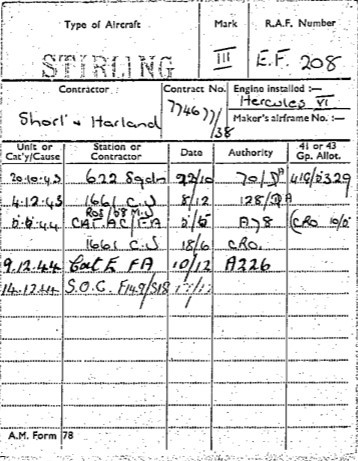 Type of Aircraft Mark R.A.F. Number
STIRLING III E.F. 208
Contractor Contract No. Engine installed :—
Short & Harland 774677/38 Hercules VI
Maker's airframe No. :—
Unit or Cat'y/Cause Station or Contractor Date Authority 41 or 43 Gp. Allot.
20.10.43 622 Sqdn 22/10 41G/D329
4.12.43 1661 C.U 8/12
CAT.AC/FA A78 (CRO
1661 C.U 18/6 CRO.
9.12.44 Cat E FA 10/12 A226
14.12.44 S.O.C.
A.M. Form 78